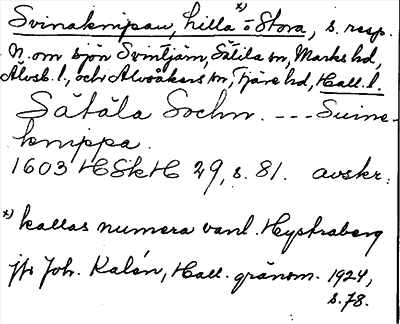 Svinaknipan, lilla x) o Stora, s. resp.
N. om sjön Svintjärn, Sätila sn, Marks hd,
Älvsb. l., och Älvsåkers sn, Fjäre hd, Hall. l.
Sätåla Sochn. --- Suine-
knippa.
1603 HSkH 29, s. 81. avskr.
x) kallas numera vanl. Hystraberg
jfr Joh. Kalén, Hall. gränsm. 1924,
s. 78.